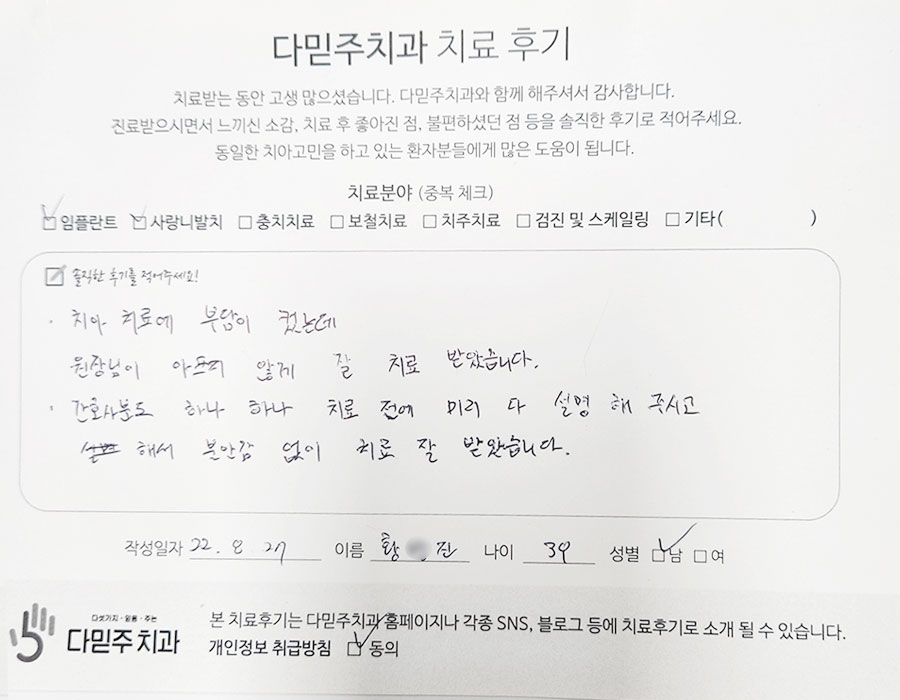 다믿주치과 치료 후기
치료받는 동안 고생 많으셨습니다. 다믿주치과와 함께 해주셔서 감사합니다.
진료받으시면서 느끼신 소감, 치료 후 좋아진 점, 불편하셨던 점 등을 솔직한 후기로 적어주세요.
동일한 치아고민을 하고 있는 환자분들에게 많은 도움이 됩니다.
치료분야 (중복 체크)
☑ 임플란트 ☑ 사랑니발치 ☐ 충치치료 ☐ 보철치료 ☐ 치주치료 ☐ 검진 및 스케일링 ☐ 기타( )
솔직한 후기를 적어주세요!
· 치아 치료에 부담이 컸는데
원장님이 아프지 않게 잘 치료 받았습니다.
· 간호사분도 하나 하나 치료 전에 미리 다 설명 해 주시고
해서 불안감 없이 치료 잘 받았습니다.
작성일자 22. 8. 27 이름 황 진 나이 39 성별 ☑남 ☐여
다섯가지·믿음·주는
다믿주치과
본 치료후기는 다믿주치과 홈페이지나 각종 SNS, 블로그 등에 치료후기로 소개 될 수 있습니다.
개인정보 취급방침 ☑ 동의